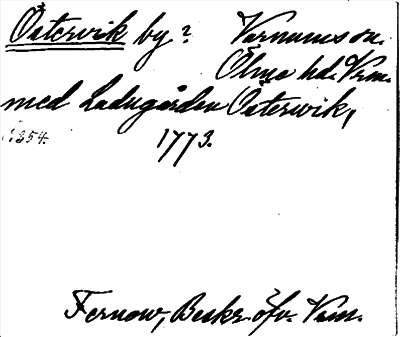 Östervik by? Varnums sn.
Ölme hd. Vrm.
med Ladugården Östervik,
1773.
Fernow, Beskr. öfv. Vrm.